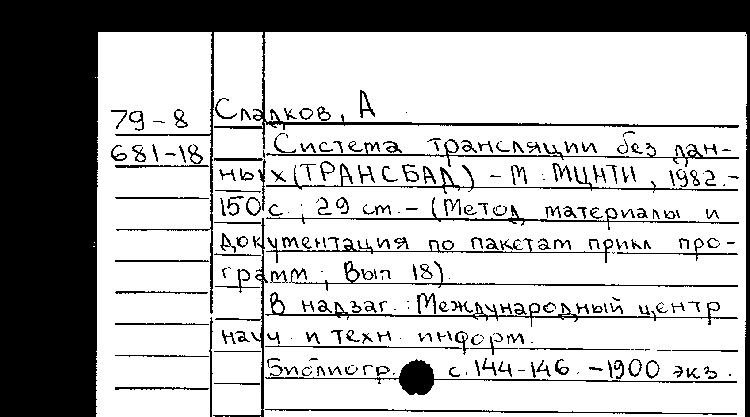 79-8 Сладков, А
681-18 Система трансляции без дан-
ных (ТРАНСБАД) - М : МЦНТИ, 1982.-
150 с.; 29 cm. - (Метод материалы и
документация по пакетам прикл про-
грамм; Вып 18).
В надзаг.: Международный центр
науч. и техн. информ.
Библиогр. с. 144-146. -1900 экз.